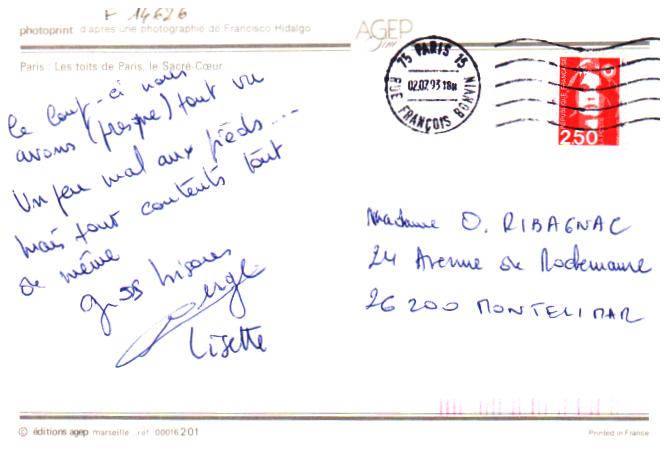 F 14626
photoprint d'après une photographie de Francisco Hidalgo
AGEP
Paris : Les toits de Paris, le Sacré-Cœur
75 PARIS 15
RUE FRANÇOIS BONVIN
02.07.93 18H
REPUBLIQUE FRANÇAISE
2,50
Ce coup-ci nous
avons (presque) tout vu
Un peu mal aux pieds...
Mais tout contents tout
de même
gros bisous
Serge
Lisette
Madame O. RIBAGNAC
24 Avenue de Rochemaure
26200 MONTELIMAR
© éditions agep marseille . réf. 00016201
Printed in France